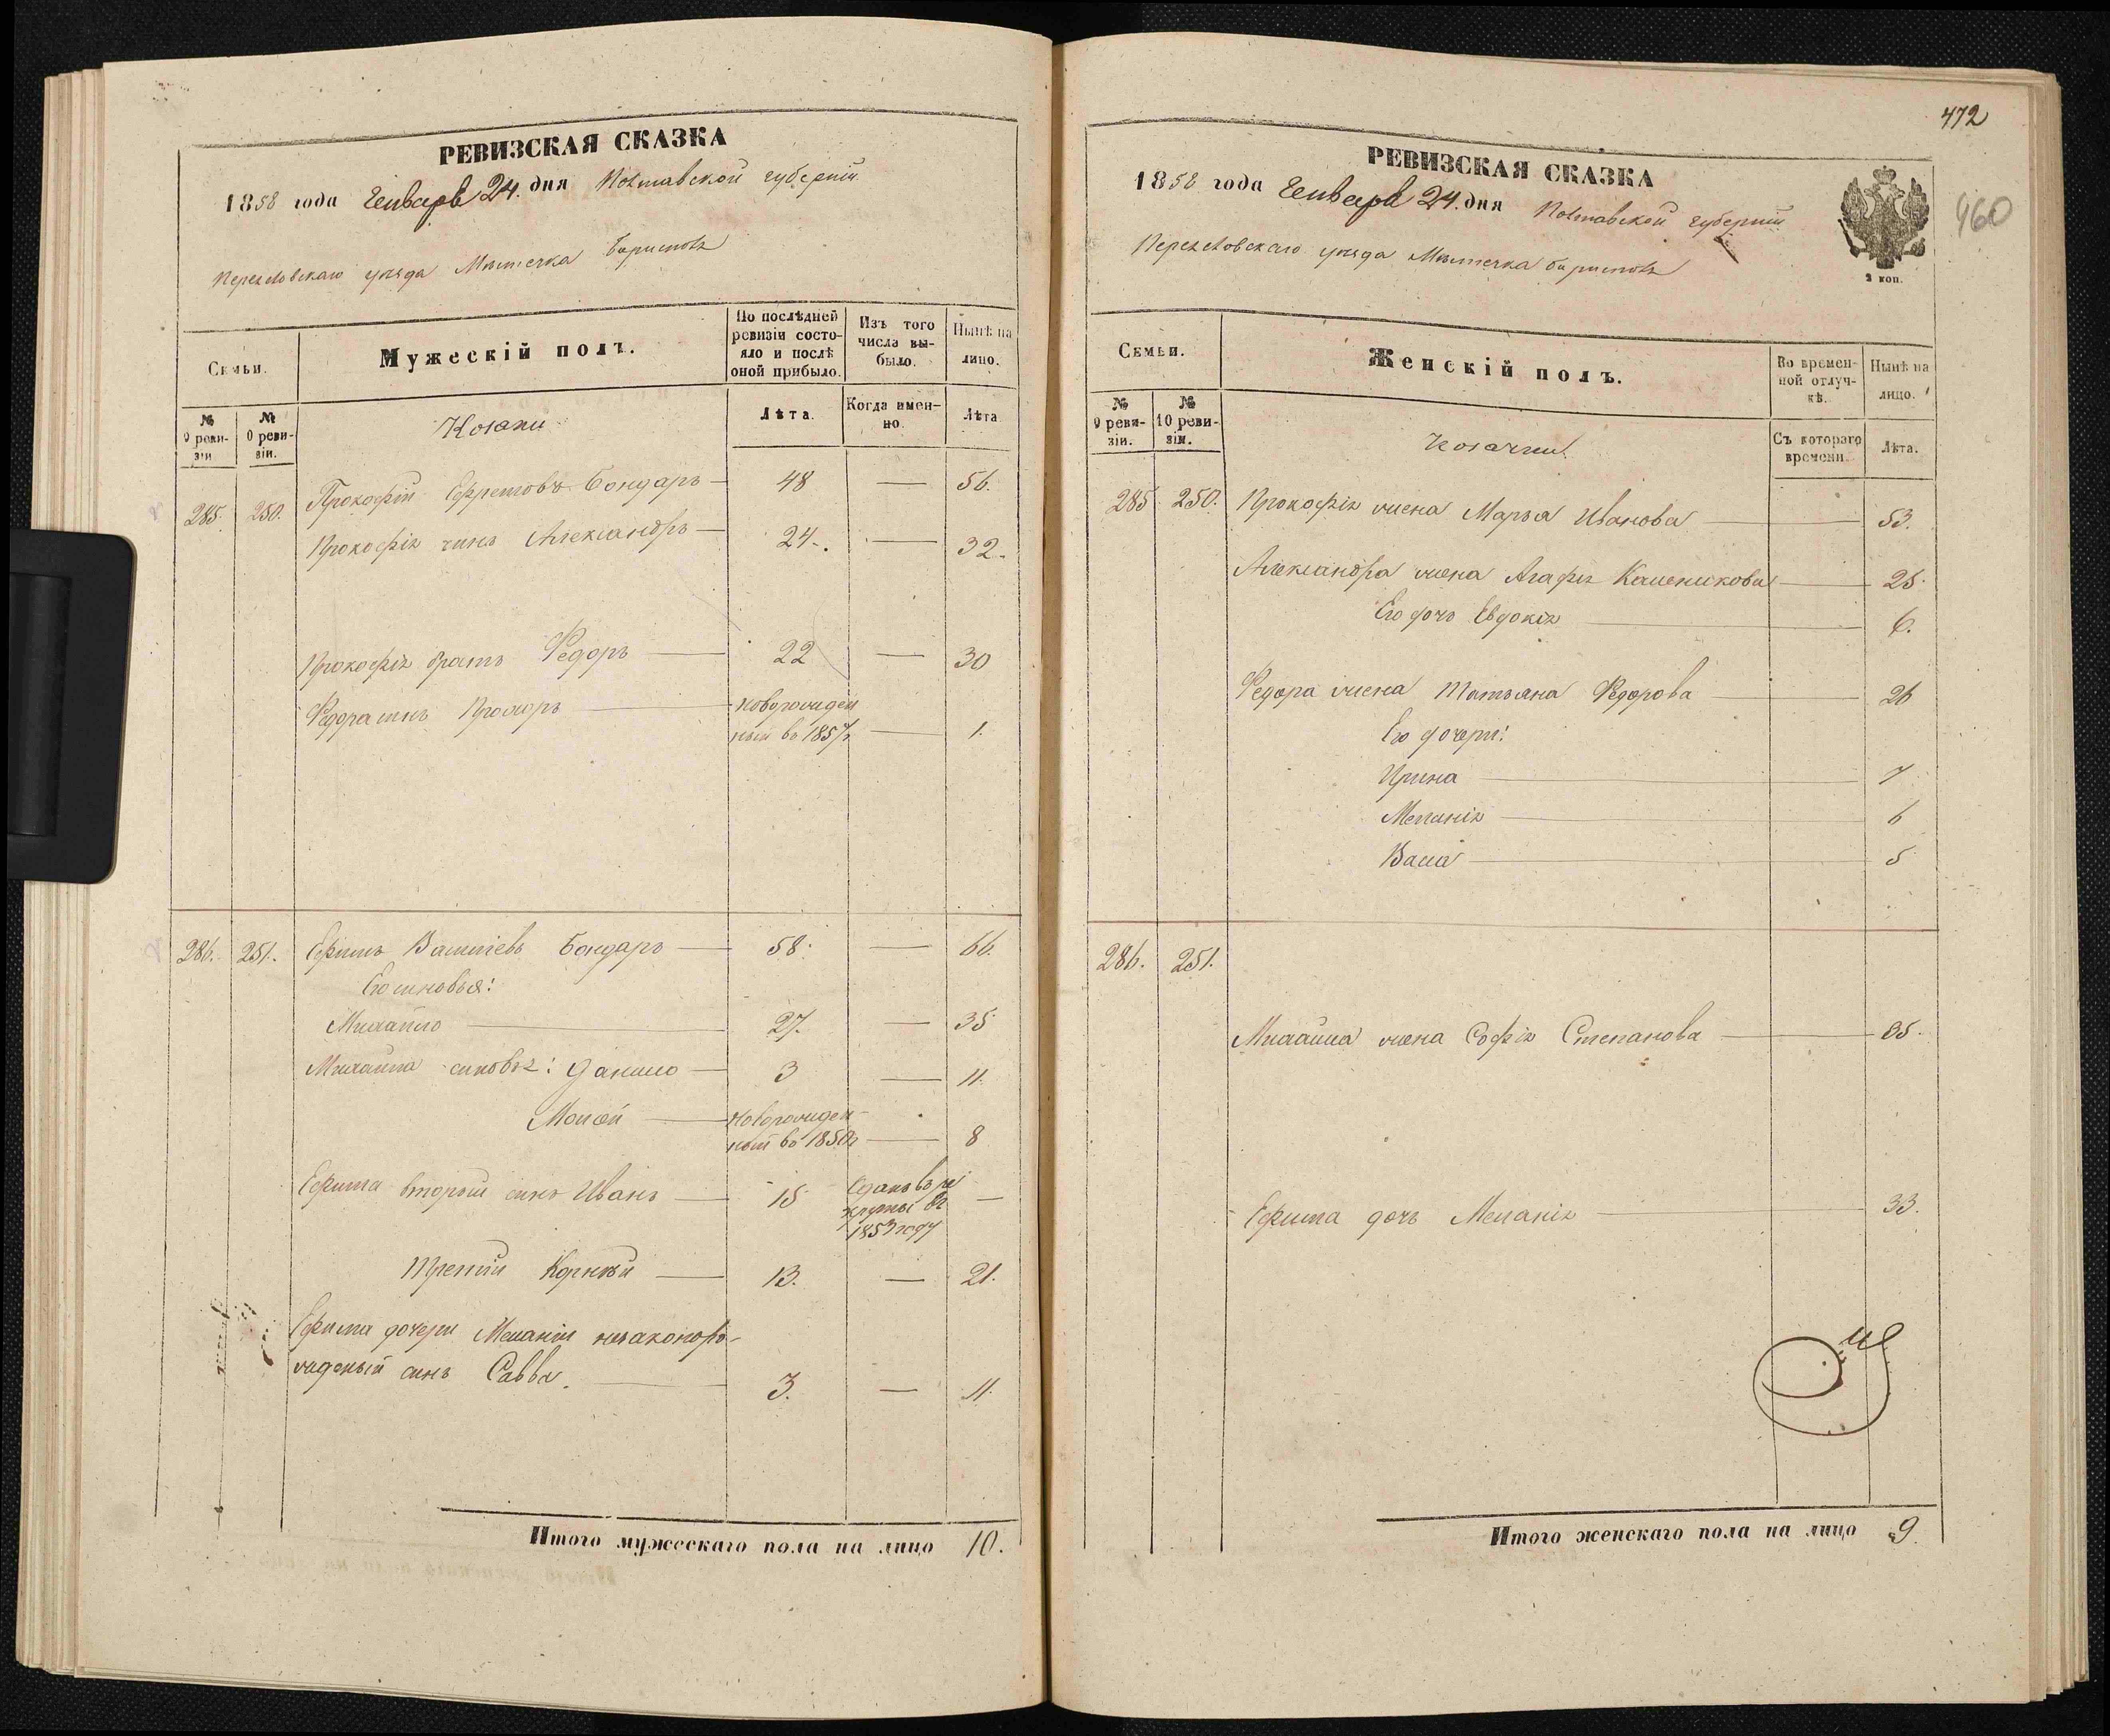 РЕВИЗСКАЯ СКАЗКА
1858 года Генваря 24. дня Полтавской губерніи
Переяловскаго уѣзда Мѣстечка Борисполя
Семьи.
Мужескій полъ.
По послѣдней ревизіи состояло и послѣ оной прибыло.
Изъ того числа выбыло.
Нынѣ на лицо.
№ 9 ревизіи
№ 0 ревизіи.
Козаки
Лѣта.
Когда именно.
Лѣта
285. 250. Прокофій Ефремовъ Бондарь 48 — 56.
Прокофія сынъ Александръ 24. — 32.
Прокофія братъ Федоръ 22 — 30
Федора сынъ Прохоръ новорожден
ный въ 1857г — 1.
286. 251. Ефимъ Василіевъ Бондарь 58. — 66.
Его сыновья:
Михайло 27. — 35
Михайла сыновья: Данило 3 — 11.
Моисей новорожден-
ный въ 1850г — 8
Ефима вторый сынъ Иванъ 15 Сданъ въ ре
круты въ
1853 году —
Третій Корнѣй 13. — 21.
Ефима дочери Меланіи незаконоро-
жденый сынъ Савва. 3. — 11.
Итого мужескаго пола на лицо 10.
472
460
РЕВИЗСКАЯ СКАЗКА
1858 года Генваря 24. дня Полтавской губерніи
Переяловскаго уѣзда Мѣстечка Борисполя
2 коп.
Семьи.
Женскій полъ.
Во временной отлучкѣ.
Нынѣ на лицо.
№ 9 ревизіи.
№ 10 ревизіи.
Козачки
Съ котораго времени.
Лѣта.
285 250. Прокофія жена Марья Иванова 53.
Александра жена Агафія 25.
Его дочь Евдокія 6.
Федора жена Татьяна Федорова 26
Его дочери:
Ирина 7
Меланія 6
Васса 5
286. 251.
Михайла жена Софія Степанова 35.
Ефима дочь Меланія 33.
Итого женскаго пола на лицо 9.